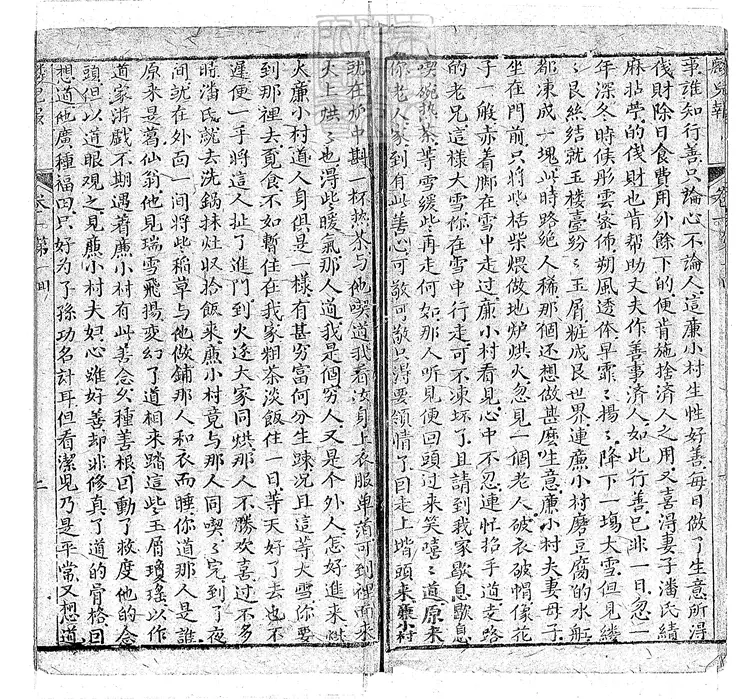 事誰知行善只論心不論人這廉小村生性好善每日做了生意所得
伐財除日食費用外餘下的便肯施捨濟人之用又喜得妻子潘氏績
麻拈苧的伐財也肯帮助丈夫作善事濟人如此行善已非一日忽一
年深冬時候彤雲密佈朔風透体早霏〻揚〻降下一塲大雪但見縷
〻艮絲結就玉楼臺紛〻玉屑粧成艮世界連廉小村磨豆腐的水缸
都凍成一塊此時路絕人稀那個还想做甚麽生意廉小村夫妻母子
坐在門前只將些枯柴煨做地炉烘火忽見一個老人破衣破帽像花
子一般赤着脚在雪中走过廉小村看見心中不忍連忙招手道走路
的老兄這樣大雪你在雪中行走可不凍坏了且請到我家歇息歇息
喫碗热茶等雪緩些再走何如那人听見便回頭过来笑嘻〻道原来
你老人家到有此善心可敬可敬只得要領情了回走上堦頭来廉小村
就在炉中斟一杯热茶与他喫道我看汝身上衣服单薄可到裡面来
火上烘〻也得些暖氣那人道我是個穷人又是个外人怎好進来烘
火廉小村道人身俱是一樣有甚穷富何分生踈况且這等大雪你要
到那裡去覓食不如暫住在我家粗茶淡飯住一日等天好了去也不
遲便一手將這人扯了進門到火边大家同烘那人不勝欢喜过不多
時潘氏就去洗鍋抹灶収拾飯来廉小村竟与那人同喫〻完到了夜
间就在外面一间將些稻草与他做鋪那人和衣而睡你道那人是誰
原来是葛仙翁他見瑞雪飛揚变幻了道相来踏這些玉屑瓊瑤以作
道家游戲不期遇着廉小村有此善念欠種善根回動了救度他的念
頭但以道眼观之見廉小村夫妇心雖好善却非修真了道的骨格回
想道他廣種福田只好为子孫功名計耳但看潔兒乃是平常又想道
卷一 第一回
二